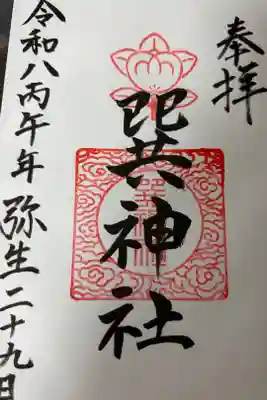 奉拝
巽神社
令和八丙午年 弥生二十九日